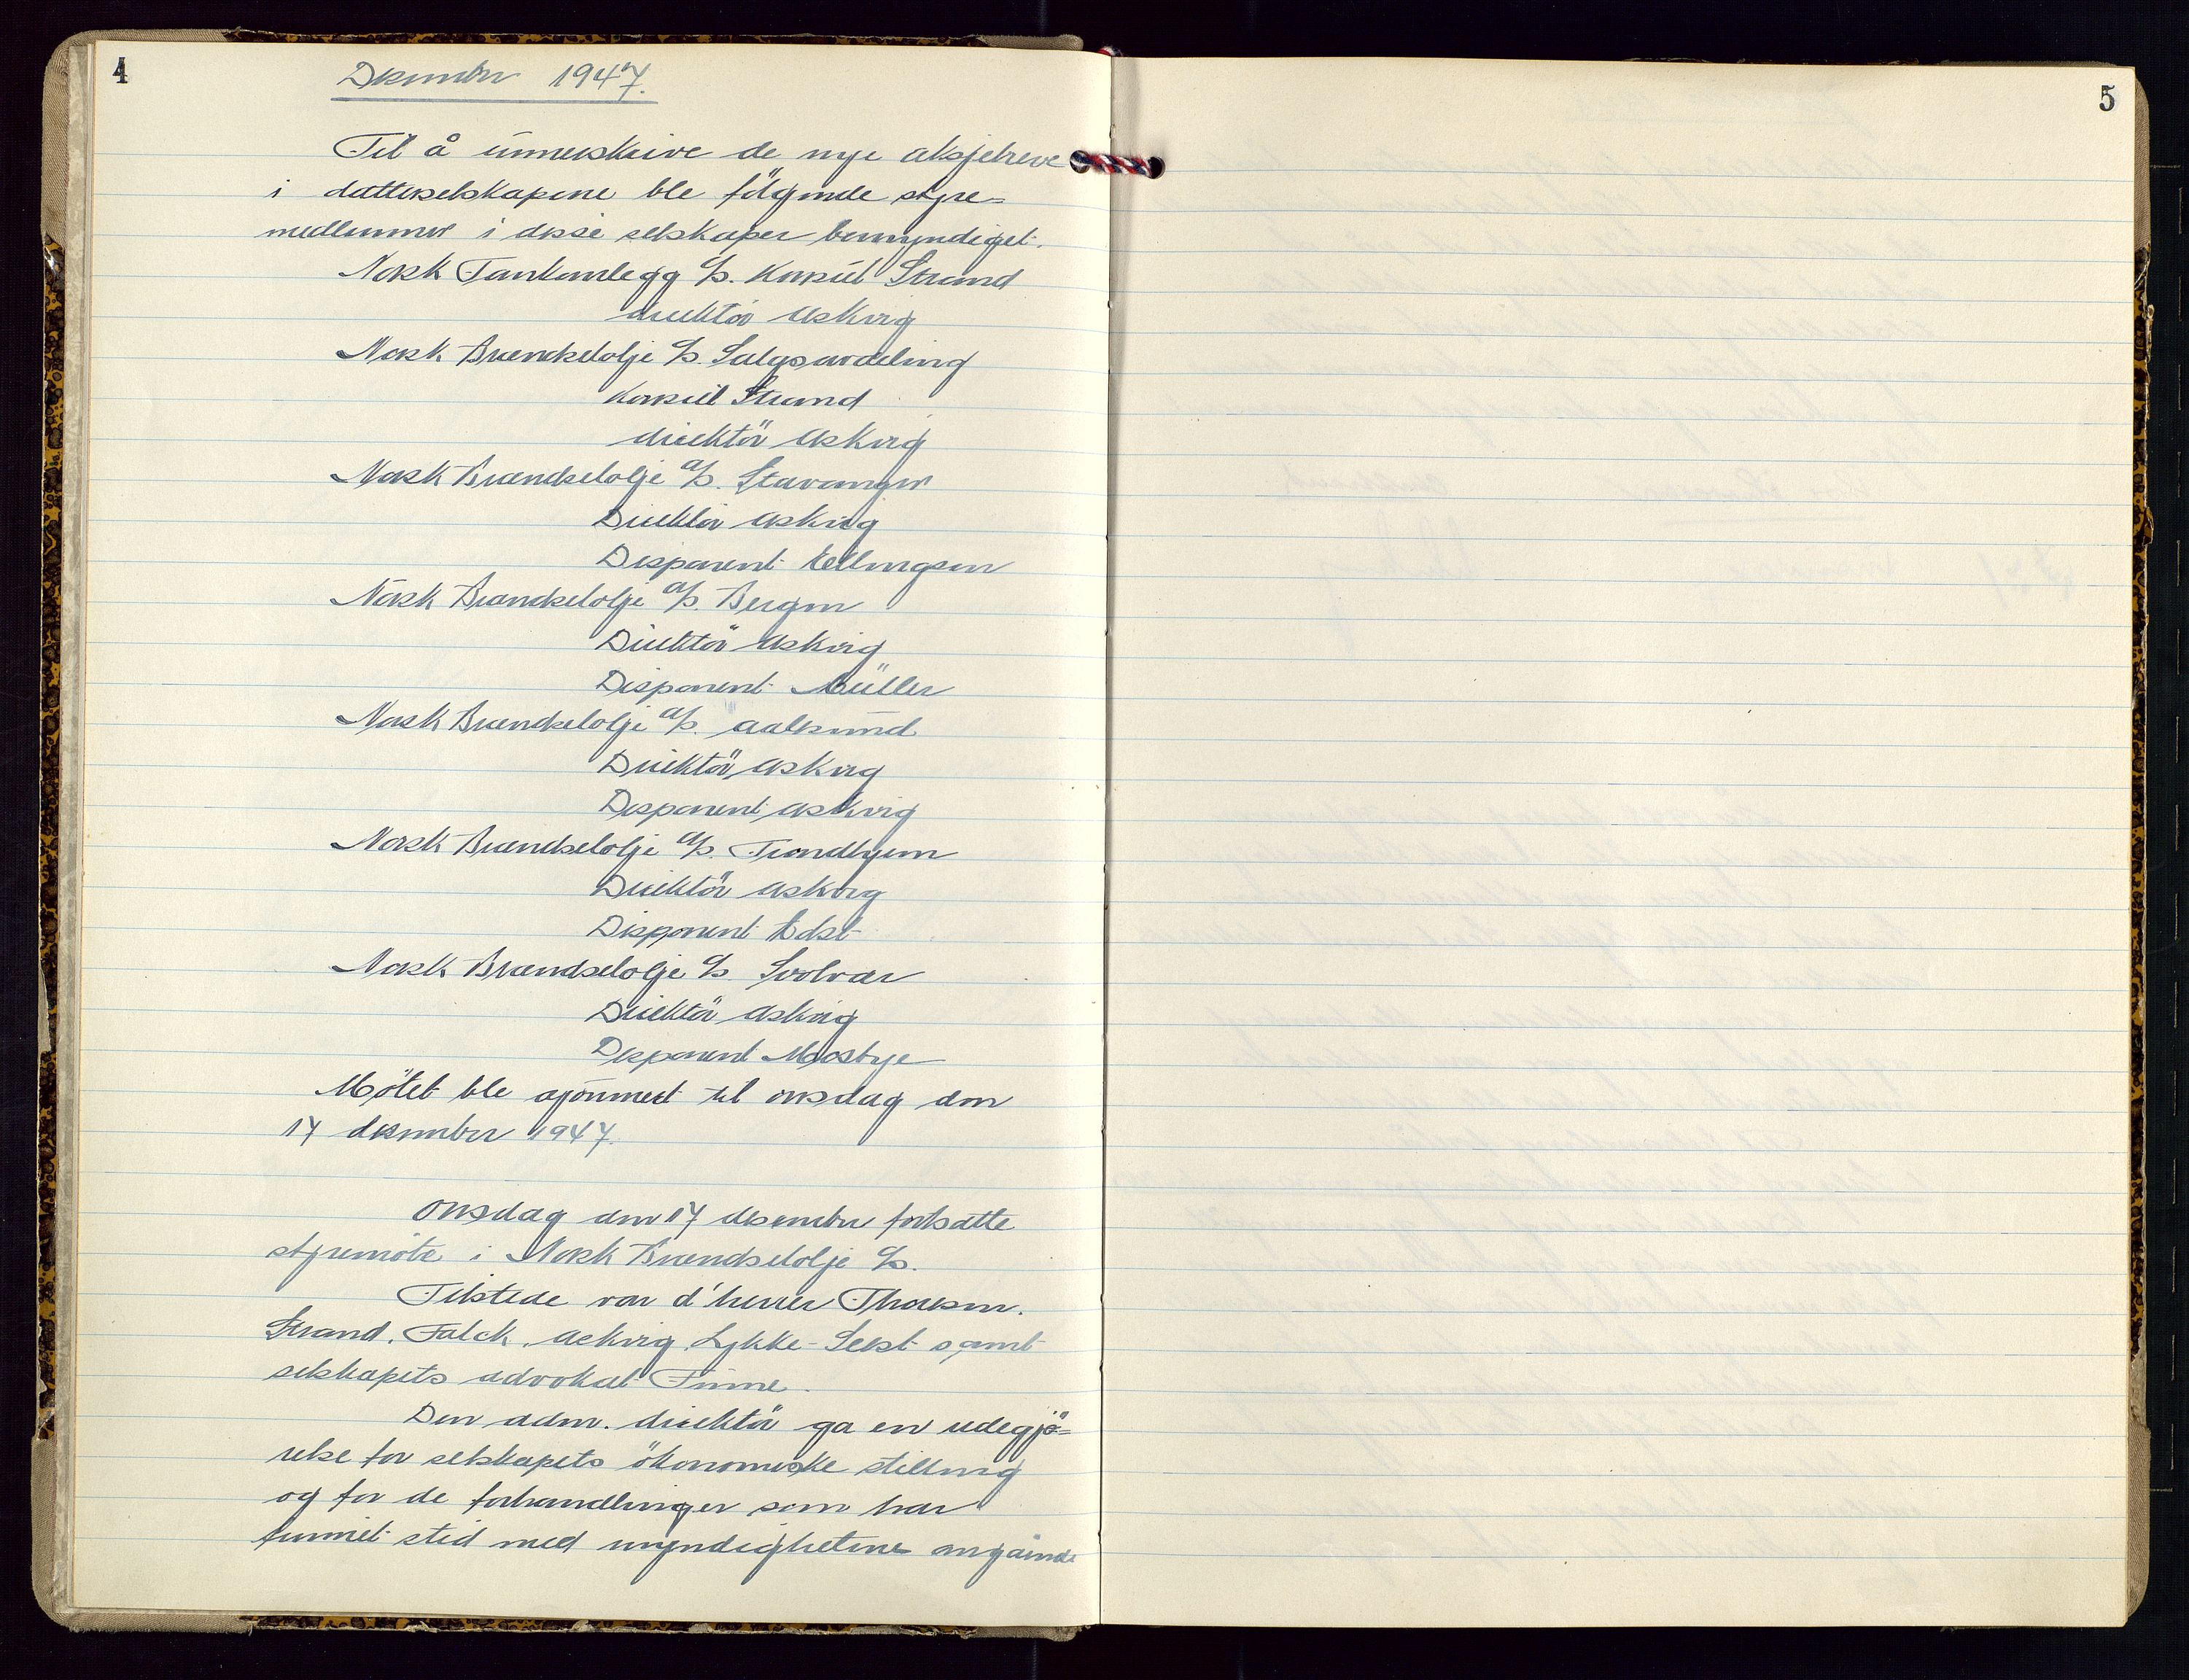 4
Desember 1947.
Til å underskrive de nye aksjebreve
i datterselskapene ble fölgende styre=
medlemmer i disse selskaper bemyndiget.
Norsk Tankanlegg A/S. Konsul Strand
direktör Askvig
Norsk Brændselolje A/S. Salgsavdeling
Konsul Strand
direktör Askvig
Norsk Brændselolje A/S. Stavanger
Direktör Askvig
Disponent Ellingsen
Norsk Brændselolje A/S. Bergen
Direktör Askvig
Disponent Müller
Norsk Brændselolje A/S. Aalesund
Direktör Askvig
Disponent Askvig
Norsk Brændselolje A/S. Trondhjem
Direktör Askvig
Disponent
Norsk Brændselolje A/S Svolvær
Direktör Askvig
Disponent
Mötet ble ajournert til onsdag den
17 desember 1947.
Onsdag den 17 desember fortsatte
styremöte i Norsk Brændselolje A/S.
Tilstede var d'herrer Thoresen.
Strand. Falck. Askvig. Lykke-Seest samt
selskapets advokat Finne.
Den adm. direktör ga en redegjö=
relse for selskapets ökonomiske stilling
og for de forhandlinger som har
funnet sted med myndighetene angående
5